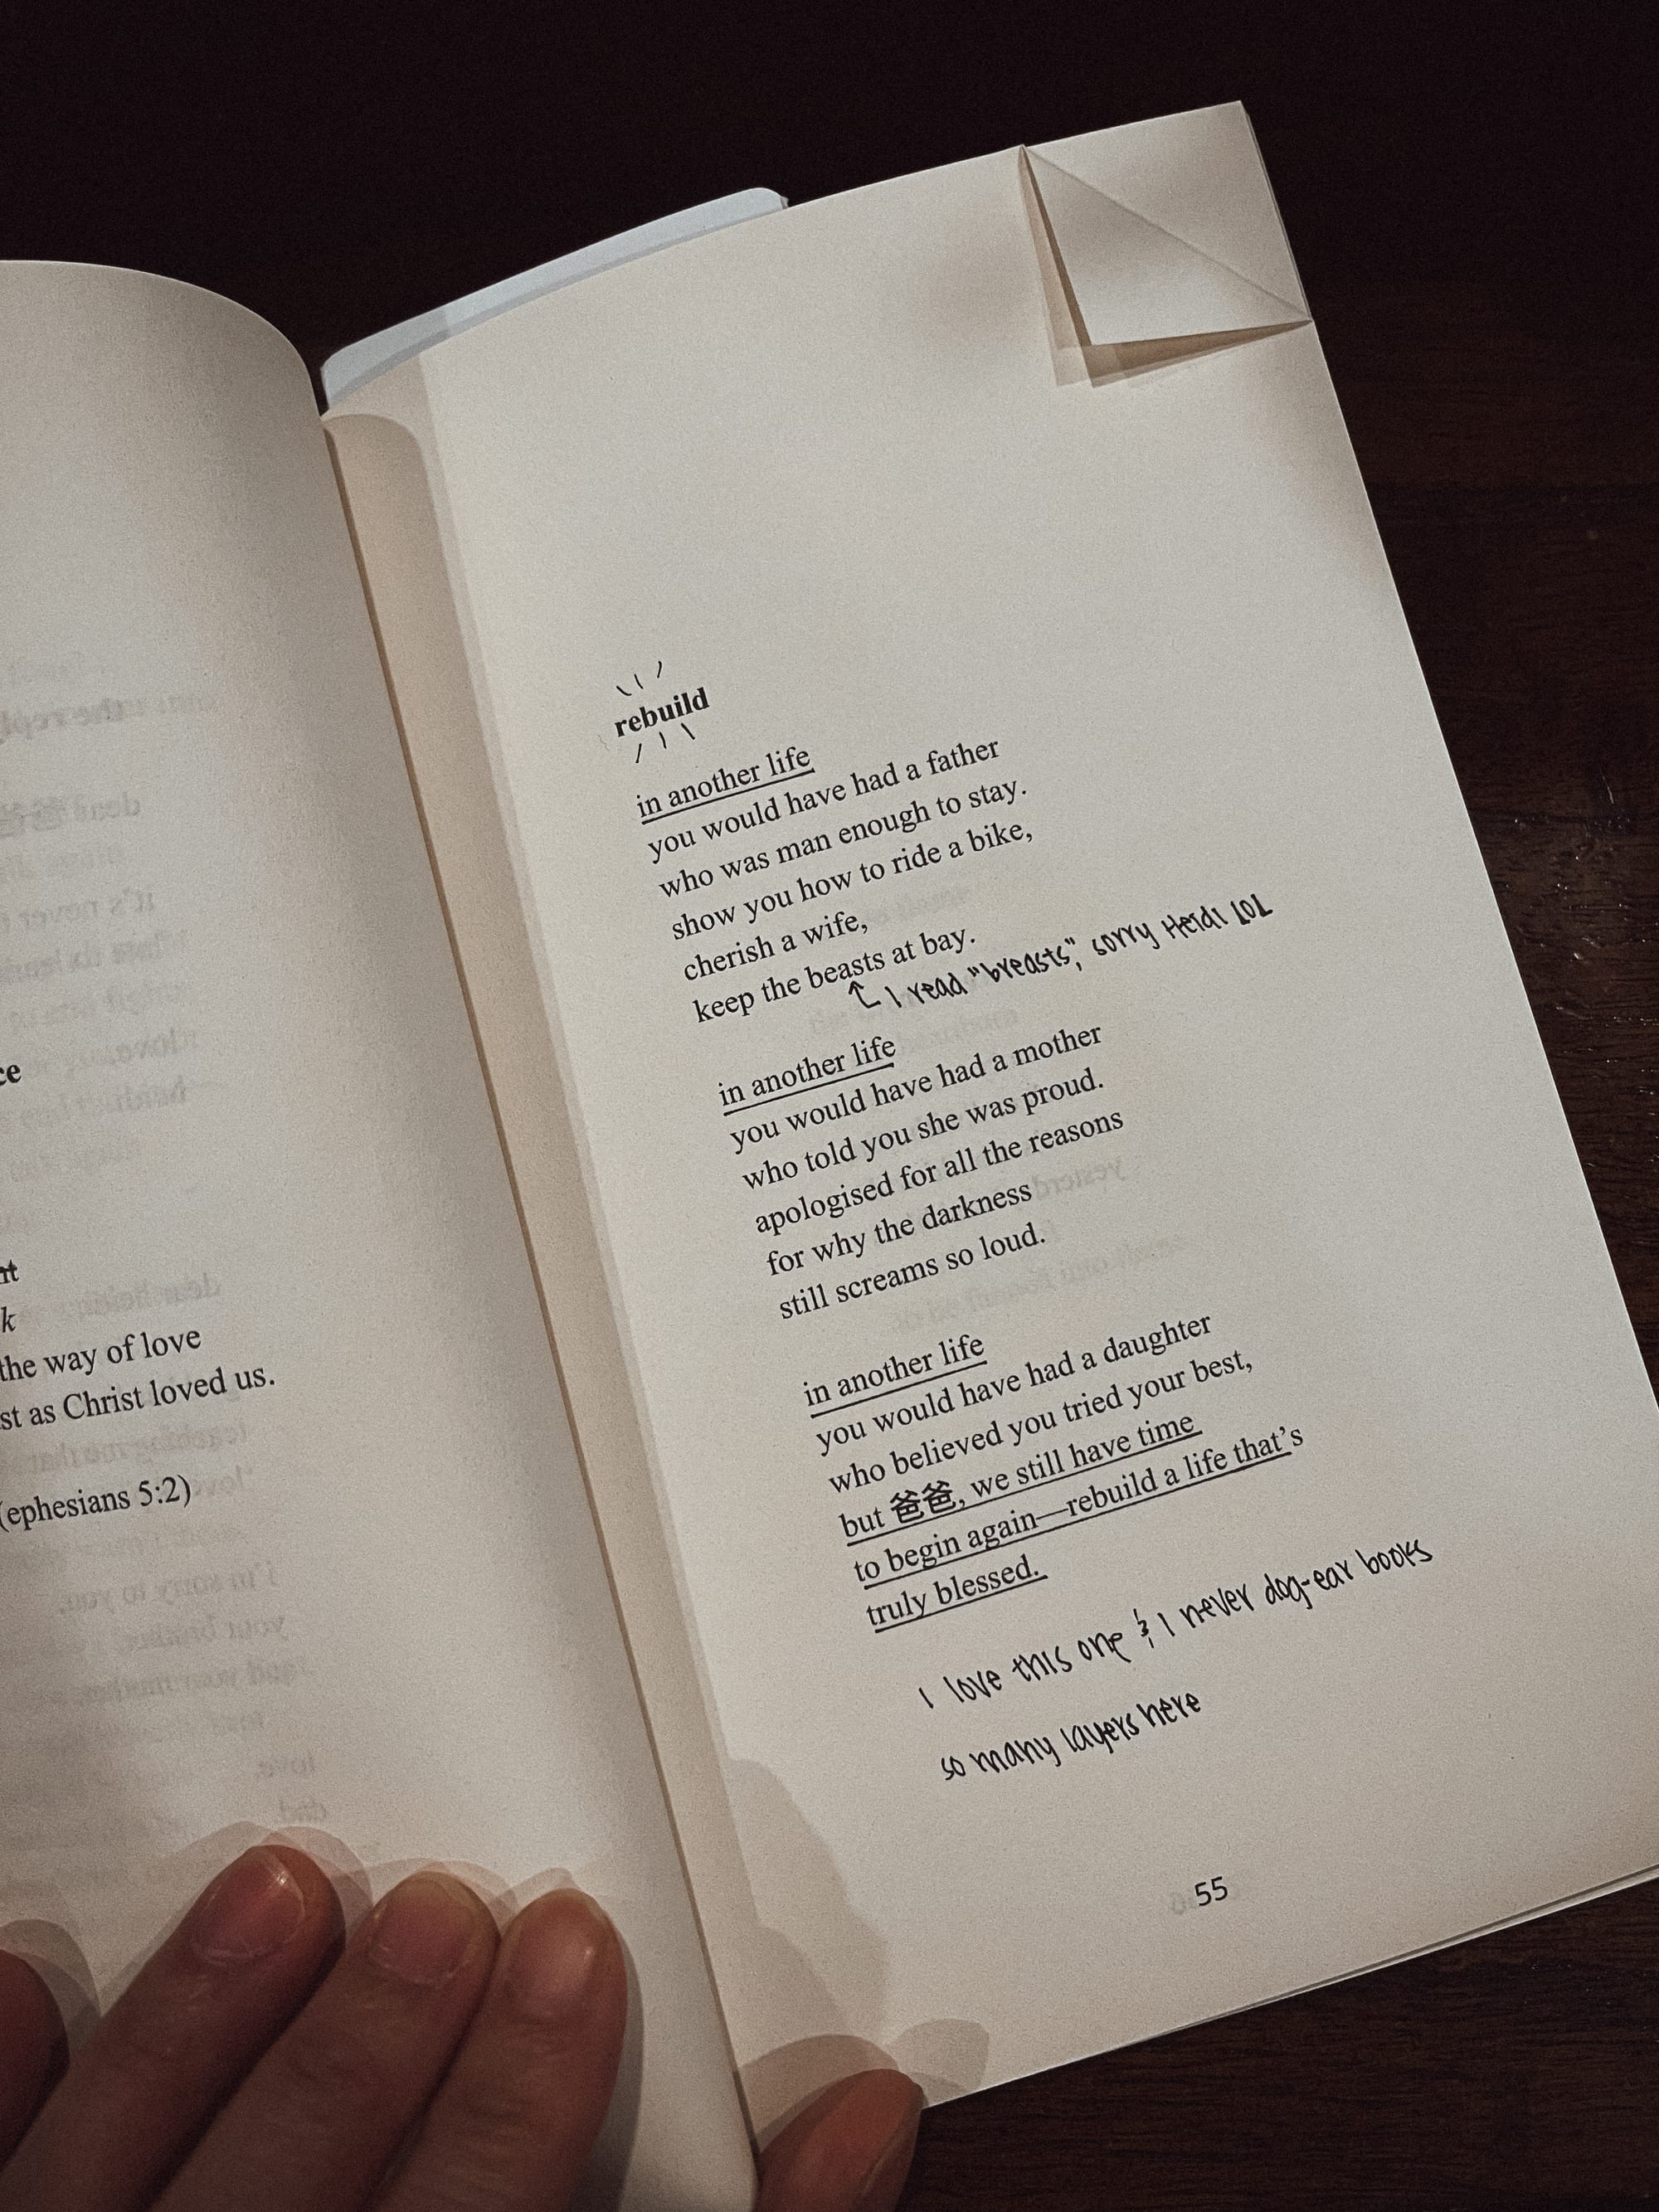 ce
nt
k
the way of love
st as Christ loved us.
(ephesians 5:2)
rebuild
in another life
you would have had a father
who was man enough to stay.
show you how to ride a bike,
cherish a wife,
keep the beasts at bay.
I read "breasts", sorry Heidi LOL
in another life
you would have had a mother
who told you she was proud.
apologised for all the reasons
for why the darkness
still screams so loud.
in another life
you would have had a daughter
who believed you tried your best,
but 爸爸, we still have time
to begin again—rebuild a life that's
truly blessed.
I love this one & I never dog-ear books
so many layers here
55